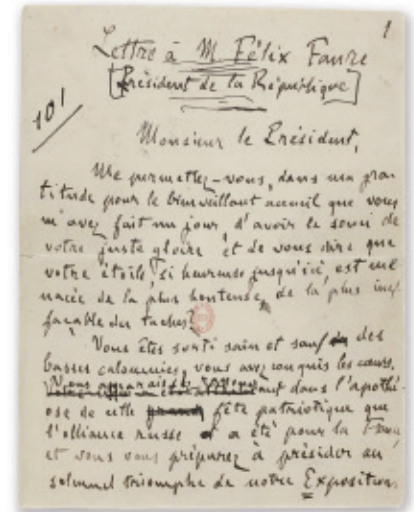 1
Lettre à M. Félix Faure
[Président de la République]
101
Monsieur le Président,
Me permettez-vous, dans ma gra-
titude pour le bienveillant accueil que vous
m'avez fait un jour, d'avoir le souci de
votre juste gloire et de vous dire que
votre étoile, si heureuse jusqu'ici, est me-
nacée de la plus honteuse, de la plus inef-
façable des taches?
Vous êtes sorti sain et sauf des
basses calomnies, vous avez conquis les cœurs.
Vous apparaissez dans l'apothé-
ose de cette fête patriotique que
l'alliance russe a été pour la France,
et vous vous préparez à présider au
solennel triomphe de notre Exposition